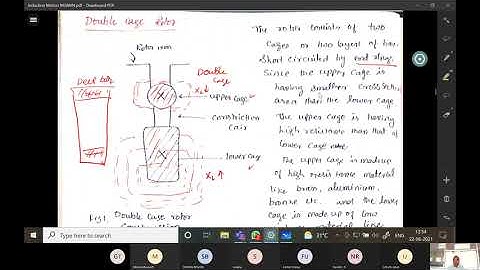 Induction Motors MGMRM.pdf - Drawboard PDF
Double Cage Rotor
Rotor iron
Deep bar
Double Cage
X₂↓
upper cage
constriction
air
lower cage
X₂↑
Fig: Double Cage rotor
Construction
The rotor consists of two
cages or two layers of bars
short circuited by end rings.
Since the upper cage is
having smaller cross section
area than the lower cage
The upper cage is having
high resistance than that of
lower cage
The upper cage is made up
of high resistance material
like brass, aluminium,
bronze etc. and the lower
cage is made up of low
material like
31°C
ENG
13:54
22-06-2021
GY
SB
S
N